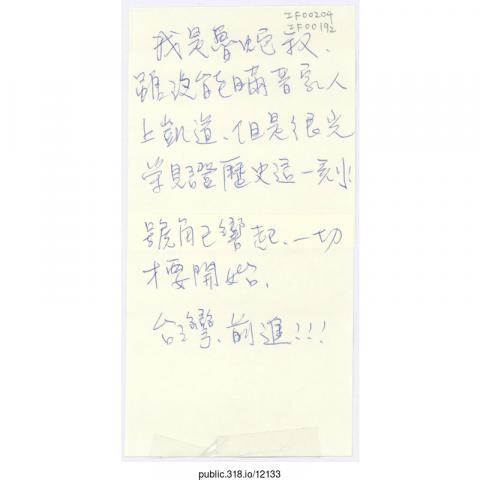 IF00204
IF00192
我是魯蛇叔、
雖沒能瞞着家人
上凱道、但是很光
榮見證歷史這一刻!
號角已響起、一切
才要開始、
台灣、前進!!!
public.318.io/12133